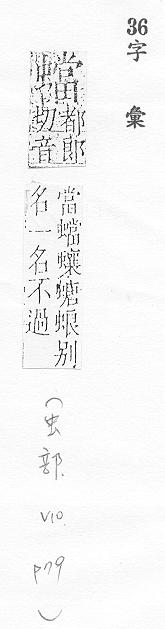 36
字彙
當都郎
切音
當蟷蠰螗蜋别
名一名不過
(虫部.
V10.
P79
)